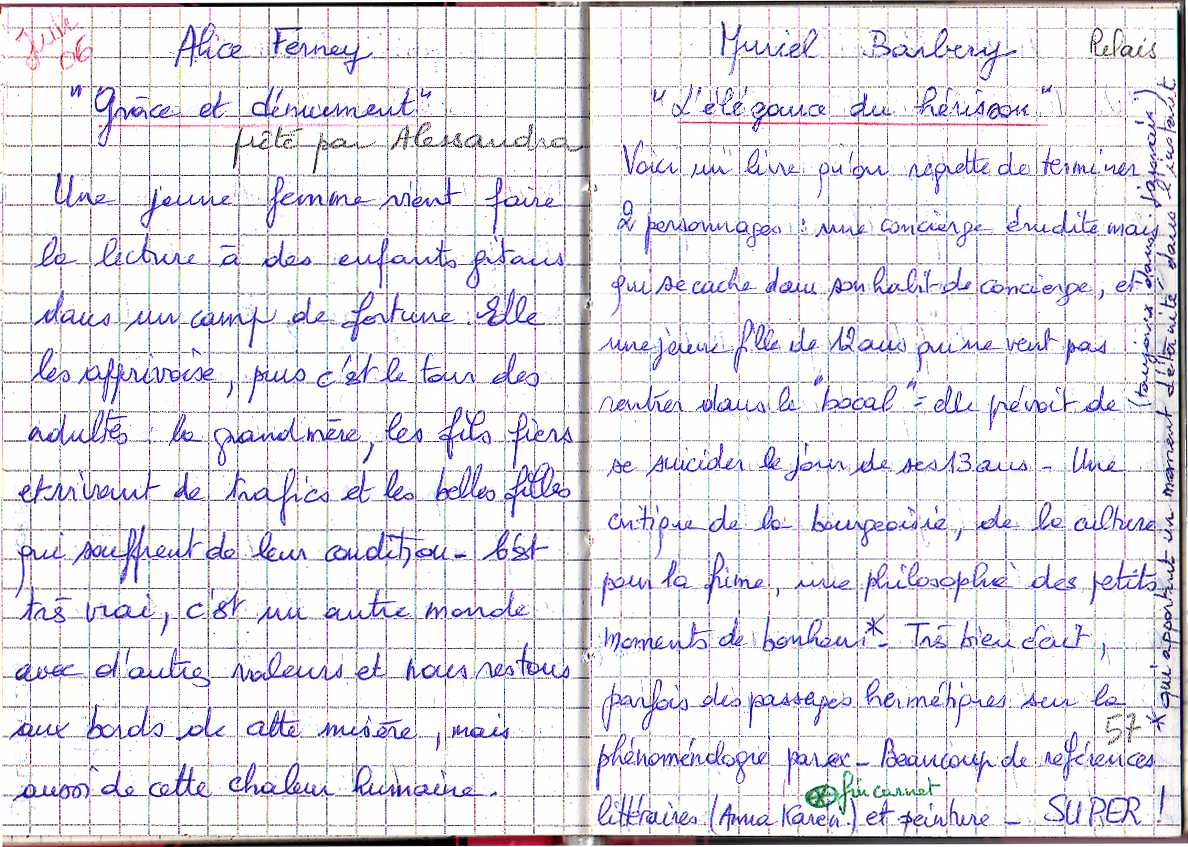 Juil
06
Alice Ferney
"Grâce et dénuement"
prêté par Alessandra
Une jeune femme vient faire
la lecture à des enfants gitans
dans un camp de fortune. Elle
les apprivoise, puis c'est le tour des
adultes : la grand mère, les fils fiers
et vivant de trafics et les belles filles
qui souffrent de leur condition - C'est
très vrai, c'est un autre monde
avec d'autres valeurs et nous restons
aux bords de cette misère, mais
aussi de cette chaleur humaine.
Muriel Barbery
Relais
"L'élégance du hérisson"
Voici un livre qu'on regrette de terminer
2 personnages : une concierge érudite mais
qui se cache dans son habit de concierge, et
une jeune fille de 12 ans qui ne veut pas
rentrer dans le "bocal" = elle prévoit de
se suicider le jour de ses 13 ans - Une
critique de la bourgeoisie, de la culture
pour la frime, une philosophie des petits
moments de bonheur * - Très bien écrit,
parfois des passages hermétiques sur la
phénoménologie par ex - Beaucoup de références
littéraires (Anna Karén.) et peinture - SUPER !
* qui apportent un moment d'éternité dans l'instant
(toujours dans jamais)
57
fin carnet